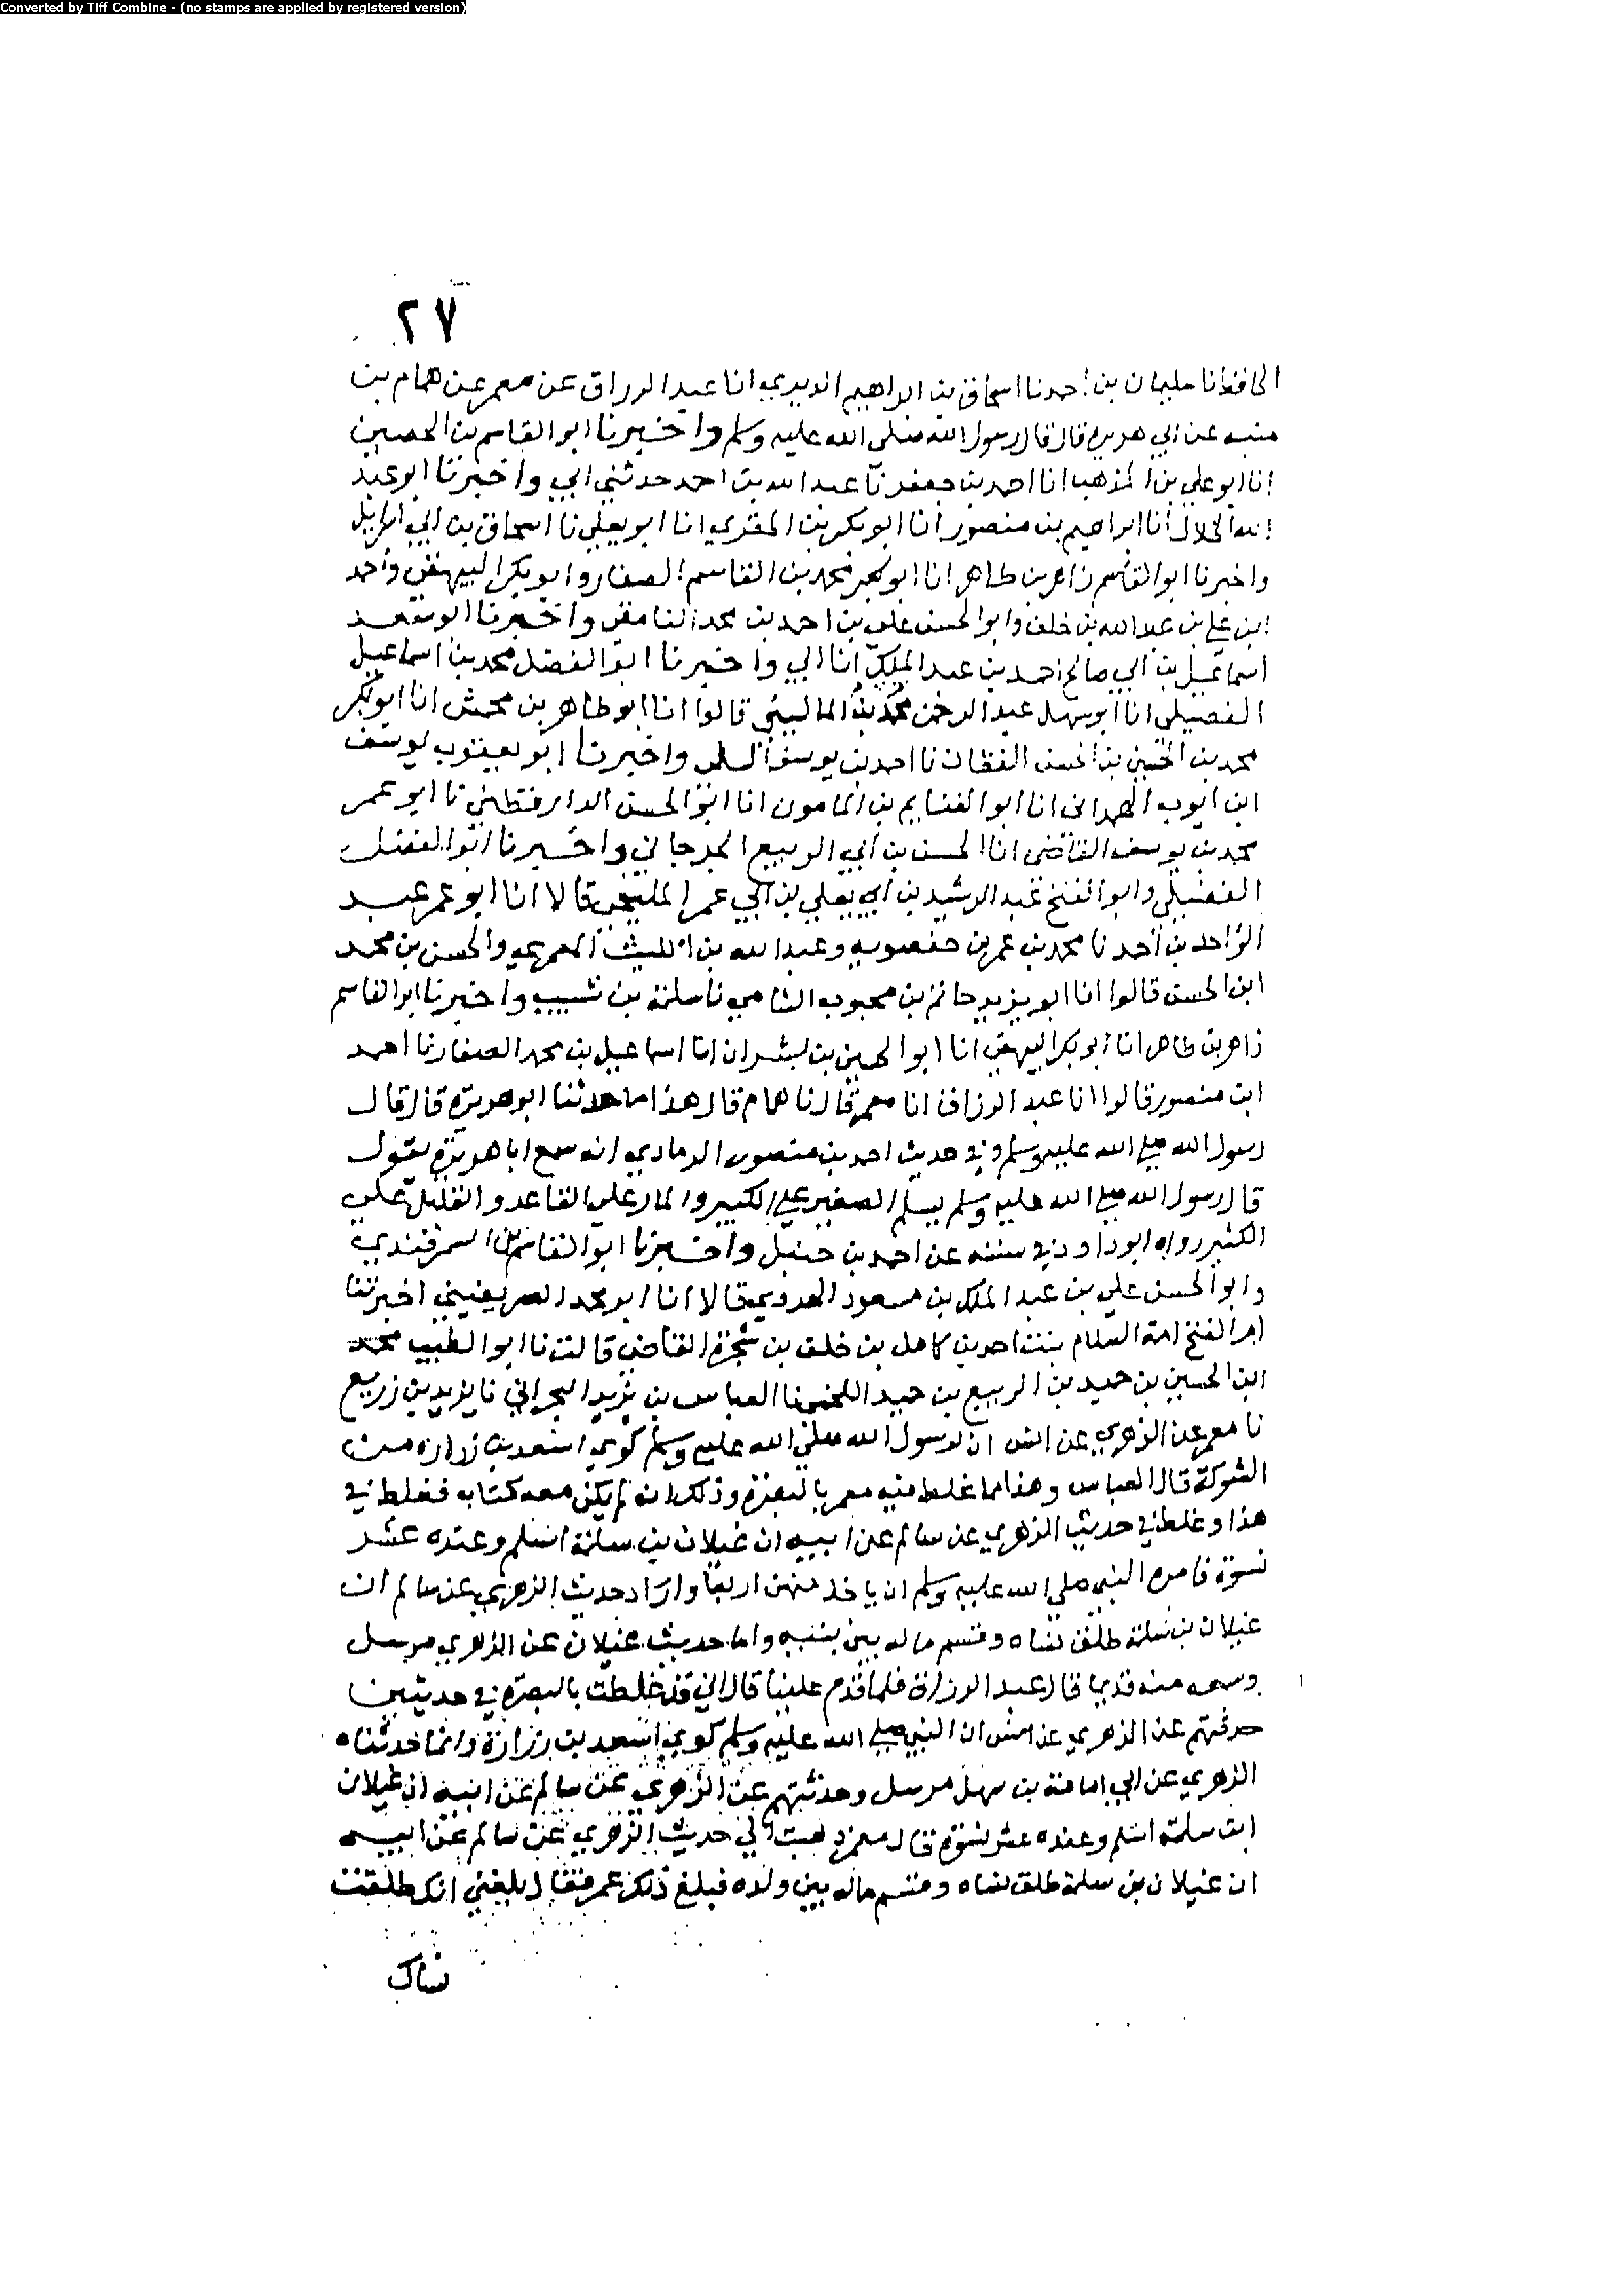 Converted by Tiff Combine - (no stamps are applied by registered version)
٢٧
الحافظ انا سليمان بن احمد نا اسحاق بن ابراهيم الدبري انا عبد الرزاق عن معمر عن همام بن
منبه عن ابي هريرة قال قال رسول الله صلى الله عليه وسلم واخبرنا ابو القاسم بن الحصين
انا ابو علي بن المذهب انا احمد بن جعفر نا عبد الله بن احمد حدثني ابي واخبرنا ابو عبد
الله الخلال انا ابراهيم بن منصور انا ابو بكر بن المقري انا ابو يعلى نا اسحاق بن ابي اسرايل
واخبرنا ابو القاسم زاهر بن طاهر انا ابو محمد بن القاسم الصفار وابو بكر البيهقي واحمد
ابن علي بن عبد الله بن خلف وابو الحسن علي بن احمد بن محمد واخبرنا ابو سعد
اسماعيل بن ابي صالح احمد بن عبد الملك انا ابي واخبرنا ابو الفضل محمد بن اسماعيل
الفضيلي انا ابو سهل عبد الرحمن بن محمد الماليني قالوا انا ابو طاهر بن محمش انا ابو بكر
محمد بن الحسين بن الحسن القطان نا احمد بن يوسف السلمي واخبرنا ابو يعقوب يوسف
ابن ايوب الهمداني انا ابو الغنايم بن المامون انا ابو الحسن الدارقطني نا ابو عمر
محمد بن يوسف القاضي انا الحسن بن ابي الربيع الجرجاني واخبرنا ابو الفضل
الفضيلي وابو الفتح عبد الرشيد بن ابي يعلى بن ابي عمر المليحي قالا انا ابو عمر عبد
الواحد بن احمد نا محمد بن عمر بن حفصويه وعبد الله بن الليث والحسن بن محمد
ابن الحسن قالوا انا ابو يزيد حاتم بن محبوب الشامي نا سلمة بن شبيب واخبرنا ابو القاسم
زاهر بن طاهر انا ابو بكر البيهقي انا ابو الحسين بن بشران انا اسماعيل بن محمد الصفار نا احمد
ابن منصور قالوا انا عبد الرزاق انا معمر قال نا همام قال هذا ما حدثنا ابو هريرة قال قال
رسول الله صلى الله عليه وسلم وفي حديث احمد بن منصور الرمادي انه سمع ابا هريرة يقول
قال رسول الله صلى الله عليه وسلم يسلم الصغير على الكبير والمار على القاعد والقليل على
الكثير رواه ابو داود في سننه عن احمد بن حنبل واخبرنا ابو القاسم بن السمرقندي
وابو الحسن علي بن عبد الملك بن مسعود الهروي قالا انا ابو محمد الصريفيني اخبرتنا
ام الفتح امة السلام بنت احمد بن كامل بن خلف بن شجرة القاضي قالت نا ابو الطيب محمد
ابن الحسين بن حميد بن الربيع بن حميد اللخمي نا العباس بن يزيد البحراني نا يزيد بن زريع
نا معمر عن الزهري عن انس ان رسول الله صلى الله عليه وسلم كوى اسعد بن زرارة من
الشوكة قال العباس وهذا مما غلط فيه معمر بالبصرة وذلك انه لم يكن معه كتابه فغلط في
هذا وغلط في حديث الزهري عن سالم عن ابيه ان غيلان بن سلمة اسلم وعنده عشر
نسوة فامره النبي صلى الله عليه وسلم ان ياخذ منهن اربعا واراد حديث الزهري عن سالم ان
غيلان بن سلمة طلق نساه وقسم ماله بين بنيه واما حديث غيلان عن الزهري مرسل
وسمعه منه قديما قال عبد الرزاق فلما قدم علينا قال اني قد غلطت بالبصرة في حديثين
حدثتهم عن الزهري عن انس ان النبي صلى الله عليه وسلم كوى اسعد بن زرارة وانما حدثناه
الزهري عن ابي امامة بن سهل مرسل وحدثتهم عن الزهري عن سالم عن ابيه ان غيلان
ابن سلمة اسلم وعنده عشر نسوة قال معمر ذهبت الى حديث الزهري عن سالم عن ابيه
ان غيلان بن سلمة طلق نساه وقسم ماله بين ولده فبلغ ذلك عمر فقال بلغني انك طلقت
نساك